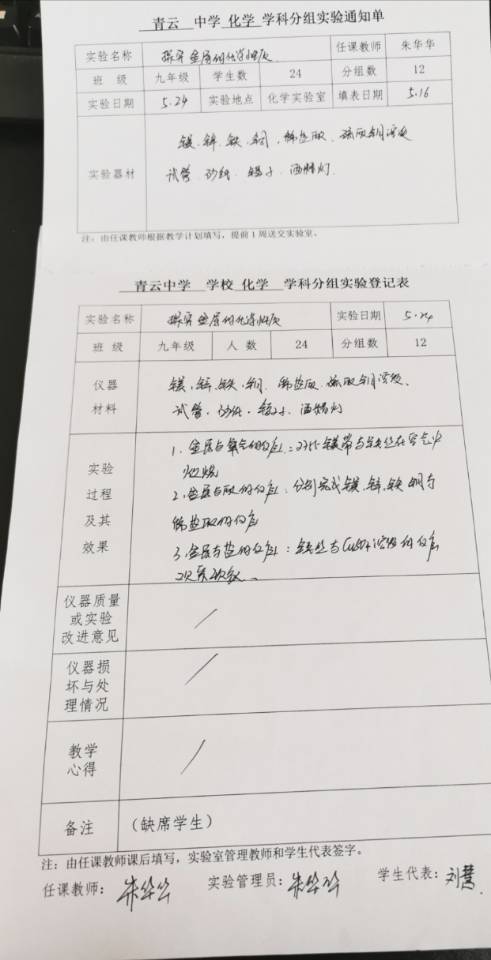 青云 中学 化学 学科分组实验通知单
实验名称 探究金属的化学性质 任课教师 朱华华
班 级 九年级 学生数 24 分组数 12
实验日期 5.24 实验地点 化学实验室 填表日期 5.16
实验器材 镁、锌、铁、铜、稀盐酸、硫酸铜溶液
试管、砂纸、镊子、酒精灯
注:由任课教师根据教学计划填写,提前1周送交实验室。
青云中学 学校 化学 学科分组实验登记表
实验名称 探究金属的化学性质 实验日期 5.24
班 级 九年级 人 数 24 分组数 12
仪器 镁、锌、铁、铜、稀盐酸、硫酸铜溶液、
材料 试管、砂纸、镊子、酒精灯
实验 1、金属与氧气的反应:对比镁带与铁丝在空气中
过程 灼烧
及其 2、金属与酸的反应:分别完成镁、锌、铁、铜与
稀盐酸的反应
效果 3、金属与盐的反应:铁丝与CuSO4溶液的反应
仪器质量
或实验
改进意见 /
仪器损
坏与处
理情况 /
教学
心得 /
备注 (缺席学生)
注:由任课教师课后填写,实验室管理教师和学生代表签字。
任课教师:朱华华 实验管理员:朱华华 学生代表:刘慧